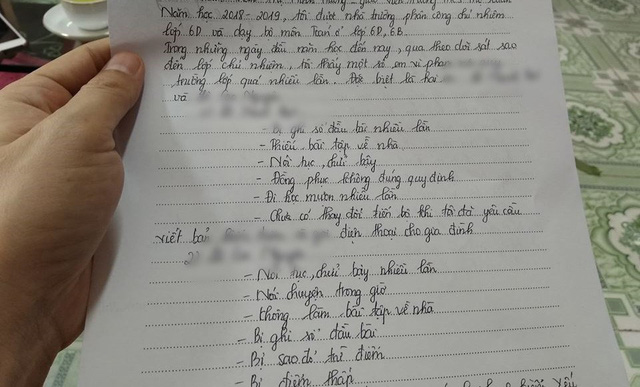 Năm học 2018 - 2019, tôi được nhà trường phân công chủ nhiệm
lớp 6D và dạy bộ môn Toán ở lớp 6D, 6B.
Trong những ngày đầu năm học đến nay, qua theo dõi sát sao
đến lớp chủ nhiệm, tôi thấy một số em vi phạm
trường lớp quá nhiều lần. Đặc biệt là hai
và
- Bị ghi sổ đầu bài nhiều lần
- Thiếu bài tập về nhà
- Nói tục, chửi bậy
- Đồng phục không đúng quy định
- Đi học muộn nhiều lần
- Chưa có thay đổi tiến bộ khi tôi đã yêu cầu
viết bản điện thoại cho gia đình
- Nói tục, chửi bậy nhiều lần
- Nói chuyện trong giờ
- Không làm bài tập về nhà
- Bị ghi sổ đầu bài
- Bị sao đỏ trừ điểm
- Bị điểm thấp